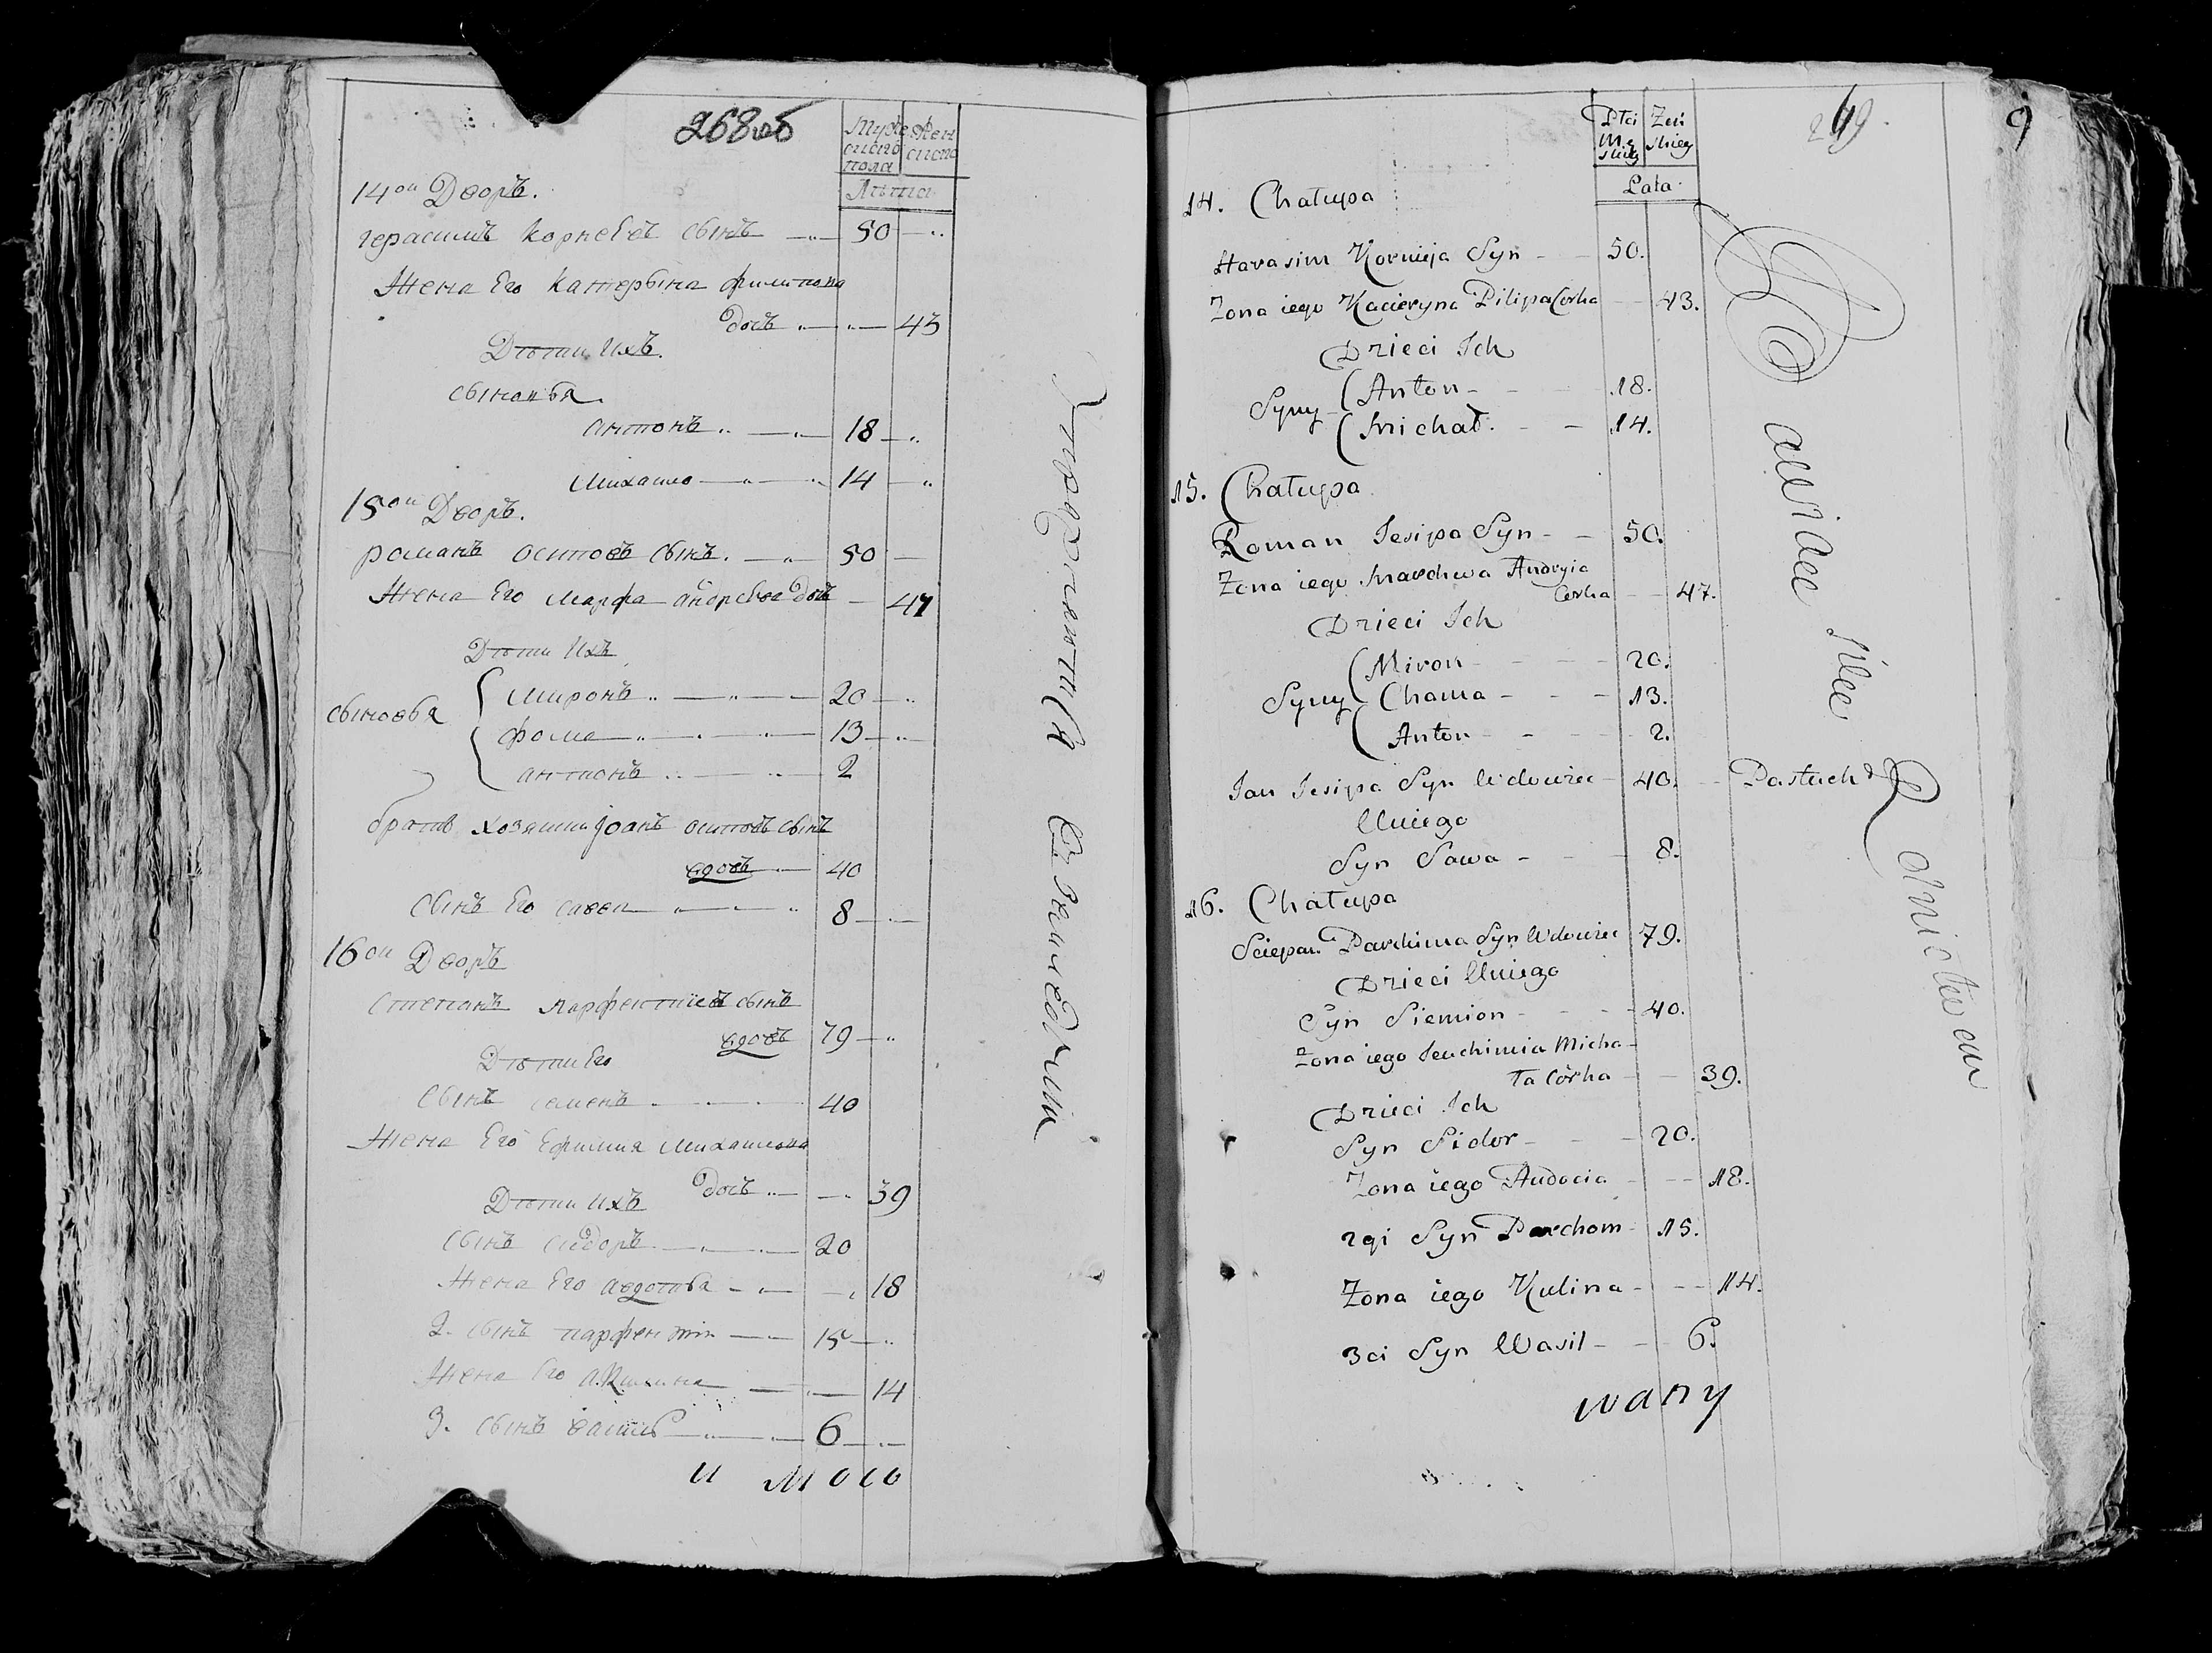 268 об
Мужеска пола Женска
Лѣта
14ой Дворъ.
герасимъ корнеевъ сынъ 50
Жена Его катерына филипова
дочь 43
Дѣти Ихъ
сыновья
антонъ 18
Михаило 14
15ой Дворъ.
романъ осиповъ сынъ. 50
Жена Его марфа андреева дочь 47
Дѣти Ихъ
сыновья
миронъ 20
фома 13
антонъ 2
братъ хозяина Иоанъ осиповъ сынъ
вдовъ 40
сынъ Его савва 8
16ой Дворъ
степанъ парфентиевъ сынъ
вдовъ 79
Дѣти Его
Сынъ семенъ 40
Жена Его Ефимия михаилова
дочь 39
Дѣти Ихъ
сынъ сидоръ 20
Жена Его авдотья 18
2. сынъ парфентий 15
Жена Его акилина 14
3. сынъ василь 6
269
9
Płci Męskiey Żeńskiey
Lata
14. Chałupa
Harasim Kornieja Syn - 50.
Zona iego Kacieryna Pilipa Corka - 43.
Dzieci Ich
Syny
Anton - 18.
Michał - 14.
15. Chałupa
Roman Jesipa Syn - 50.
Zona iego Marchwa Andryia
Corka - 47.
Dzieci Ich
Syny
Miron - 20.
Choma - 13.
Anton - 2.
Jan Jesipa Syn Wdowiec - 40. - Pastuch
Uniego
Syn Sawa - 8.
16. Chałupa
Sciepan Parchima Syn Wdowiec 79.
Dzieci Uniego
Syn Siemion - 40.
Zona iego Jeuchimia Micha-
ła Córka - 39.
Dzieci Ich
Syn Sidor - 20.
Zona iego Audocia - 18.
2gi Syn Parchom - 15.
Zona iego Kulina - 14.
3ci Syn Wasil - 6.
wany
Rolnictwem